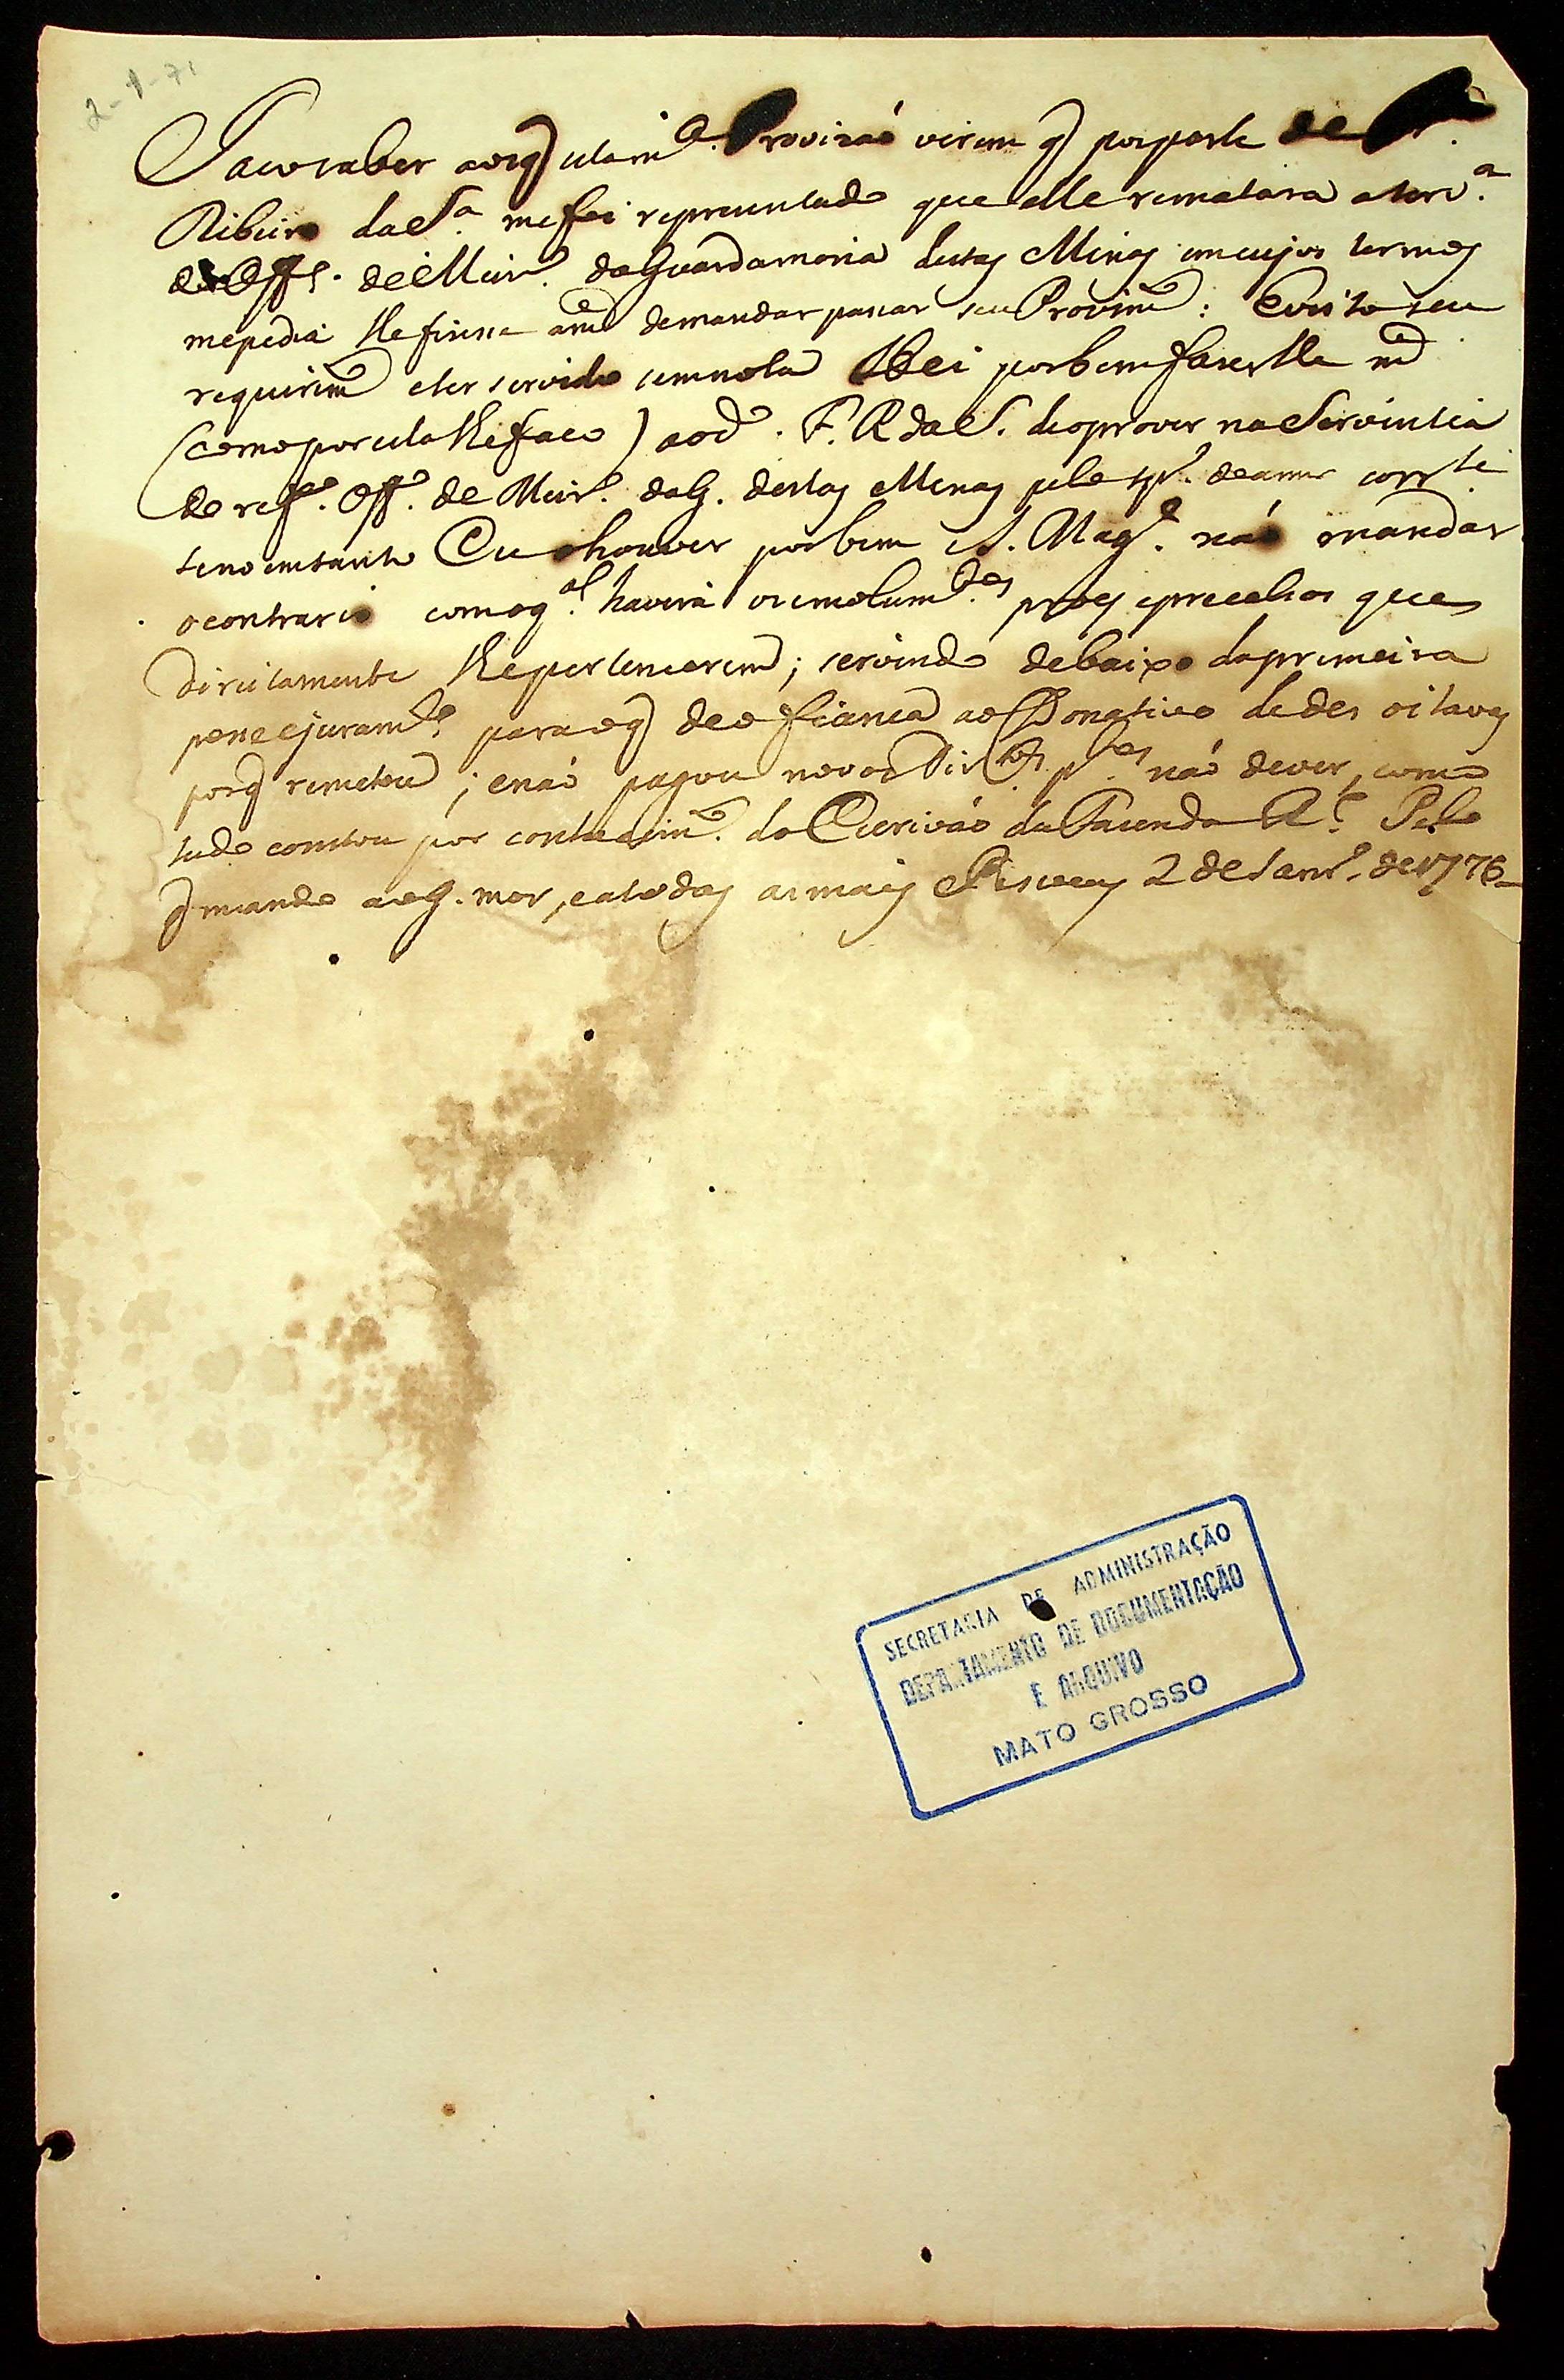 2-1-71
Faco saber aos q̃ esta m.ª Provizaó virem q̃ por parte de
Ribeiro da S.ª me foi reprezentado que elle rematara a serv.ª
do Off.º de Meir.º da Guardamoria destas Minas em cujos termos
me pedia lhe fizese a m.ce de mandar pasar seu Provim.to: E visto seu
requirim.to e ter servido sem nota Hei por bem fazerlhe m.ce
(como por esta lhe faco) ao d.º F. R da S. de o prover na Serventia
do ref.do Off.º de Meir.º da G. destas Minas pelo tp.º de anno corr.te
se no emtanto Eu o houver por bem e S. Mag.e naó mandar
o contrario com o q.al haverá os emolum.tos proes e precalsos que
direitamente lhe pertencerem; servindo debaixo da primeira
pose e juram.to para o q̃ deo fianca ao Donativo de des oitavas
porq̃ remetou; e naó pagou novos Dir.tos p.los naó dever, como
tudo constou por conhecim.to do Escrivaó da Fazenda R.l Pelo
q̃ mando ao G. mor, e a todas as mais Pesoas 2 de Janr.º de 1776
SECRETARIA DE ADMINISTRAÇÃO
DEPARTAMENTO DE DOCUMENTAÇÃO
E ARQUIVO
MATO GROSSO